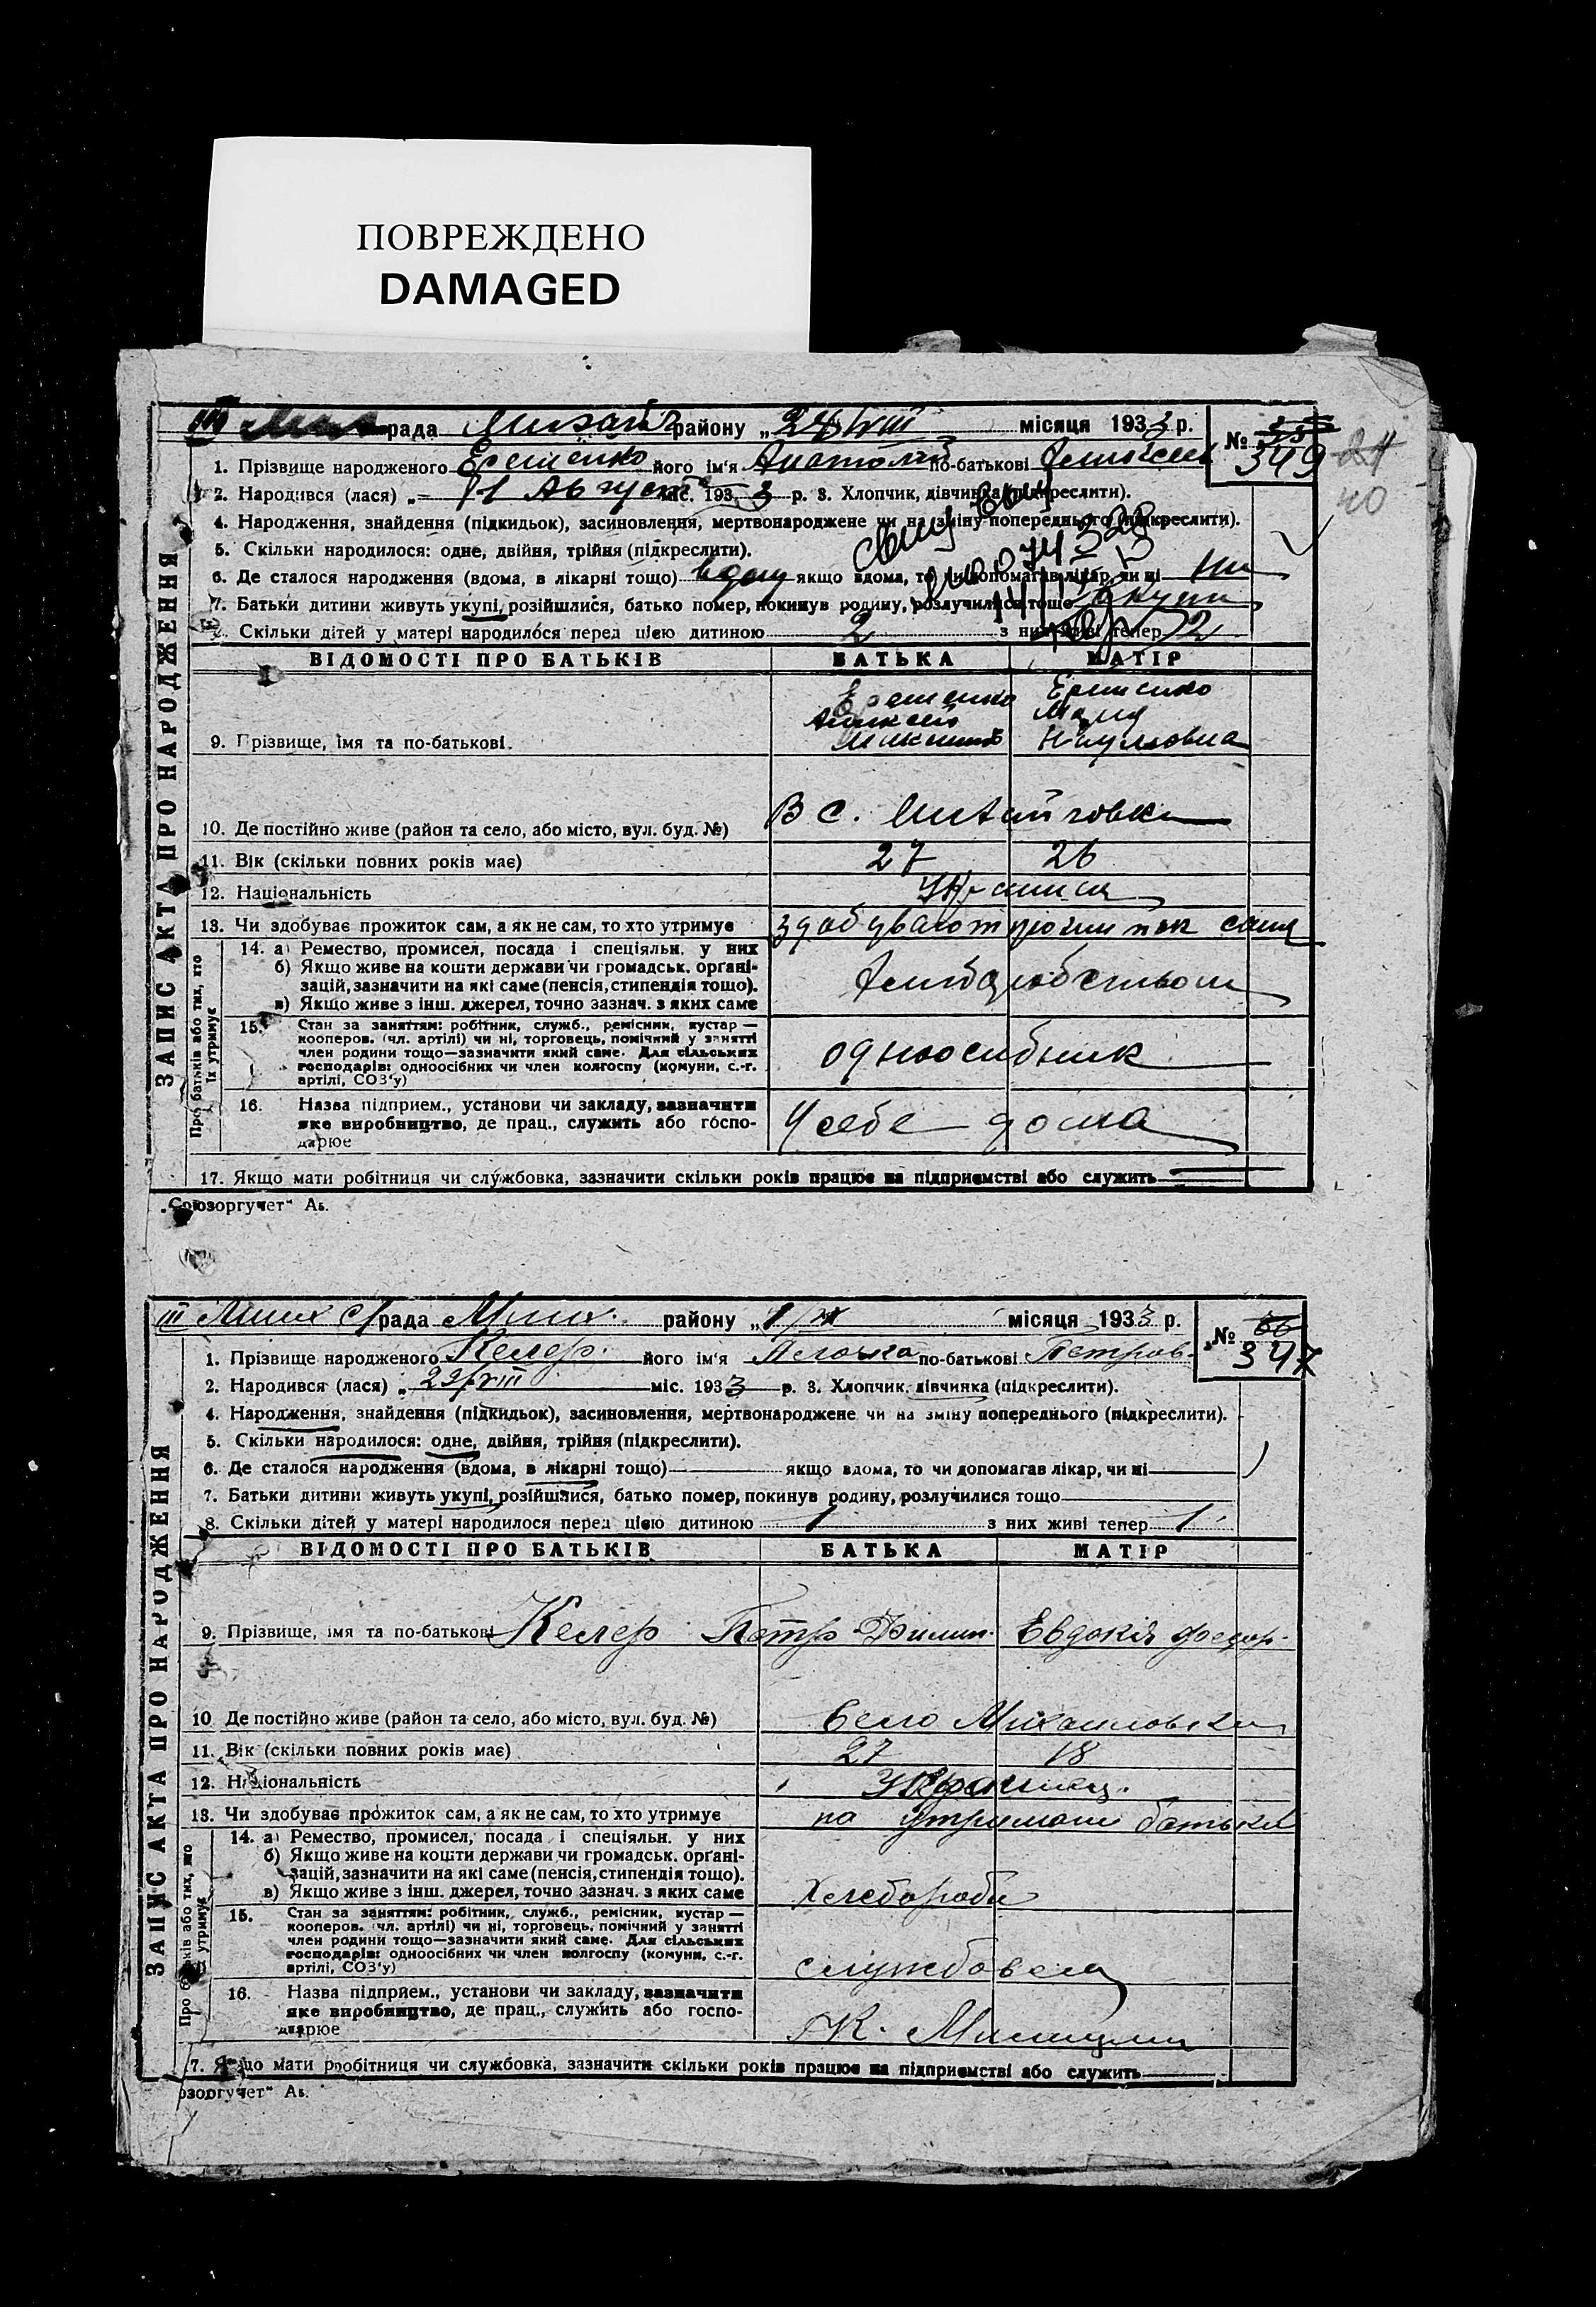 ПОВРЕЖДЕНО
DAMAGED
рада района „24/VIII місяця 1933 р.
№ 349
24
40
1. Прізвище народженого Еременко його ім'я Анатолий по-батькові
2. Народився (лася) „ 11 Августа міс. 193 3 р. 3. Хлопчик, дівчинка (підкреслити).
4. Народження, знайдення (підкидьок), засиновлення, мертвонароджене чи на зміну попереднього (підкреслити).
5. Скільки народилося: одне, двійня, трійня (підкреслити).
6. Де сталося народження (вдома, в лікарні тощо) вдому якщо вдома, то чи допомагав лікар, чи ні
7. Батьки дитини живуть укупі, розійшлися, батько помер, покинув родину, розлучилися тощо вкупи
Скільки дітей у матері народилося перед цією дитиною 2 з них живі тепер 2
ЗАПИС АКТА ПРО НАРОДЖЕННЯ
ВІДОМОСТІ ПРО БАТЬКІВ БАТЬКА МАТІР
Еременко Еременко
Алексей Мария
9. Прізвище, імя та по-батькові. Наумовна
10. Де постійно живе (район та село, або місто, вул. буд. №) В с.
11. Вік (скільки повних років має) 27 26
12. Національність
13. Чи здобуває прожиток сам, а як не сам, то хто утримує здобувают прожиток сами
Про батьків або тих, хто їх утримує
14. а) Ремество, промисел, посада і спеціяльн. у них
б) Якщо живе на кошти держави чи громадськ. органі-
зацій, зазначити на які саме (пенсія, стипендія тощо).
в) Якщо живе з інш. джерел, точно зазнач. з яких саме
15. Стан за заняттям: робітник, служб., ремісник, кустар —
кооперов. (чл. артілі) чи ні, торговець, помічний у занятті
член родини тощо—зазначити який саме. Для сільських
господарів: одноосібних чи член колгоспу (комуни, с.-г.
артілі, СОЗ'у)
одноосибник
16. Назва підприєм., установи чи закладу, зазначити
яке виробництво, де прац., служить або госпо-
дарює
У себе дома
17. Якщо мати робітниця чи службовка, зазначити скільки років працює на підприємстві або служить
„Союзоргучет“ Ав.
III Мих с/рада Мих. району „1/IX місяця 1933 р.
№ 66
347
1. Прізвище народженого Келер. його ім'я по-батькові Петров.
2. Народився (лася) „ 29/VIII міс. 1933 р. 3. Хлопчик, дівчинка (підкреслити).
4. Народження, знайдення (підкидьок), засиновлення, мертвонароджене чи на зміну попереднього (підкреслити).
5. Скільки народилося: одне, двійня, трійня (підкреслити).
6. Де сталося народження (вдома, в лікарні тощо) якщо вдома, то чи допомагав лікар, чи ні
7. Батьки дитини живуть укупі, розійшлися, батько помер, покинув родину, розлучилися тощо
8. Скільки дітей у матері народилося перед цією дитиною 1 з них живі тепер 1
ЗАПИС АКТА ПРО НАРОДЖЕННЯ
ВІДОМОСТІ ПРО БАТЬКІВ БАТЬКА МАТІР
9. Прізвище, імя та по-батькові Келер Петр Филип. Евдокія Федор.
10 Де постійно живе (район та село, або місто, вул. буд. №) Село Михайловка
11. Вік (скільки повних років має) 27 18
12. Національність Украинец.
13. Чи здобуває прожиток сам, а як не сам, то хто утримує на утримани батька
14. а) Ремество, промисел, посада і спеціяльн. у них
б) Якщо живе на кошти держави чи громадськ. органі-
зацій, зазначити на які саме (пенсія, стипендія тощо).
в) Якщо живе з інш. джерел, точно зазнач. з яких саме
Хлебороби
15. Стан за заняттям: робітник, служб., ремісник, кустар —
кооперов. (чл. артілі) чи ні, торговець, помічний у занятті
член родини тощо—зазначити який саме. Для сільських
господарів: одноосібних чи член колгоспу (комуни, с.-г.
артілі, СОЗ'у)
16. Назва підприєм., установи чи закладу, зазначити
яке виробництво, де прац., служить або госпо-
дарює
17. Якщо мати робітниця чи службовка, зазначити скільки років працює на підприємстві або служить
юзоргучет“ Ав.